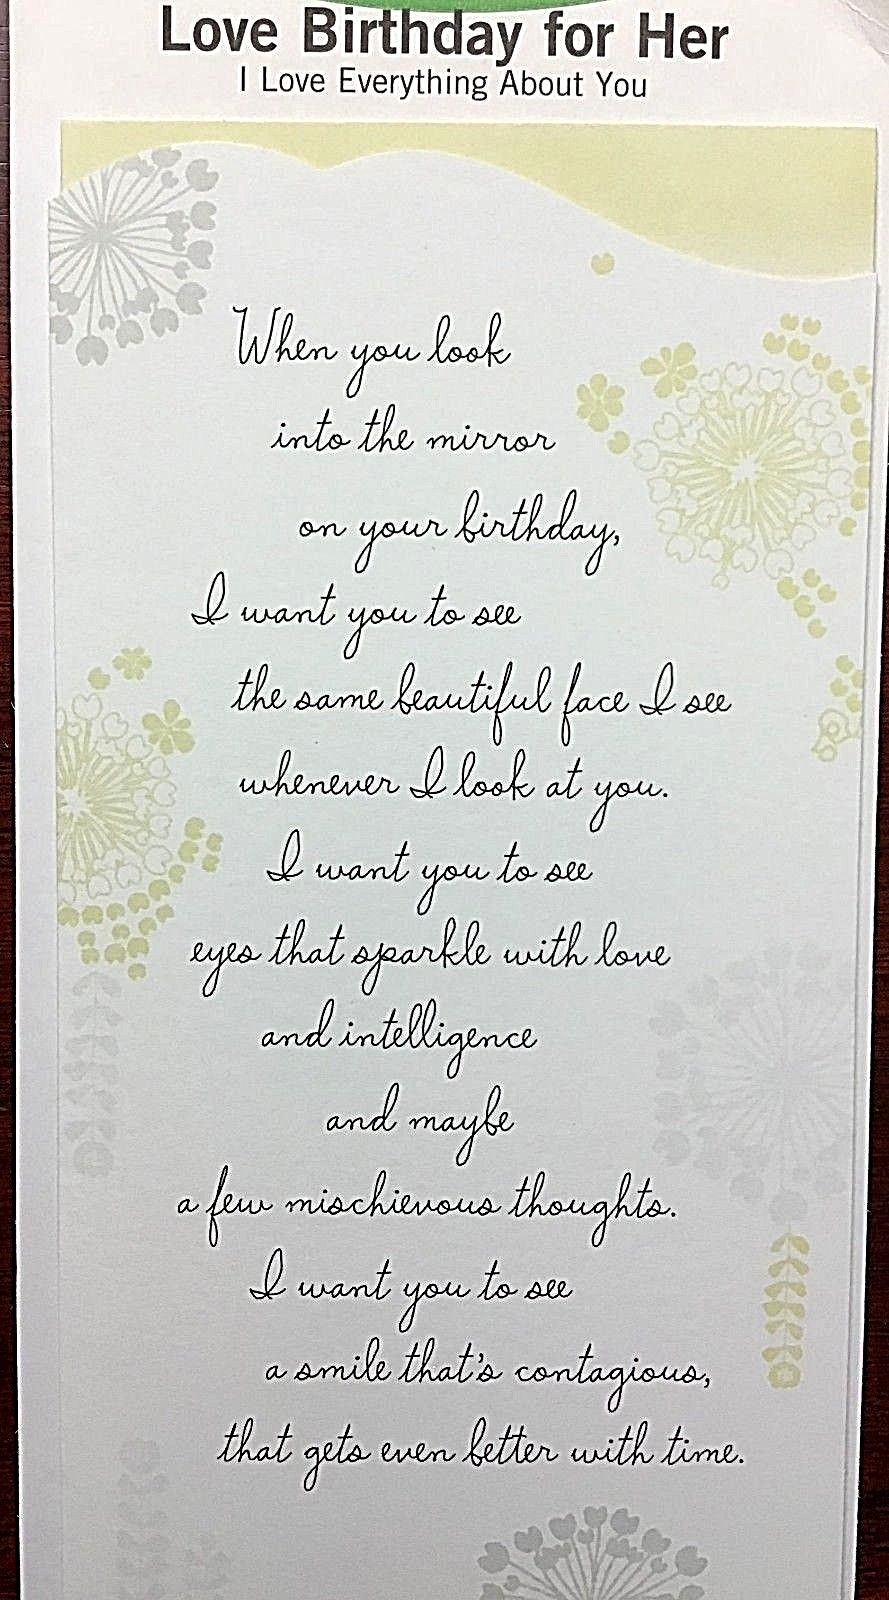 Love Birthday for Her
I Love Everything About You
When you look
into the mirror
on your birthday,
I want you to see
the same beautiful face I see
whenever I look at you.
I want you to see
eyes that sparkle with love
and intelligence
and maybe
a few mischievous thoughts.
I want you to see
a smile that's contagious,
that gets even better with time.